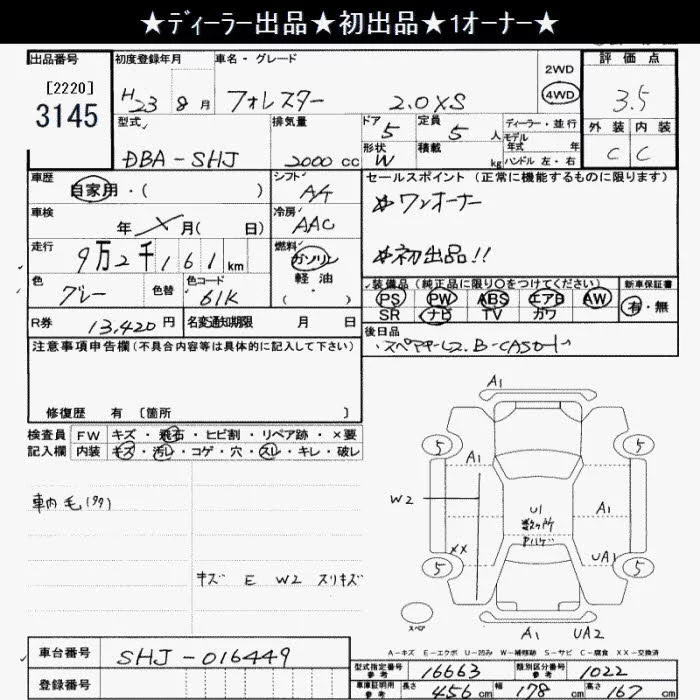 ★ディーラー出品★初出品★1オーナー★
出品番号 初度登録年月 車名・グレード 評価点
[2220] 2WD
3145 H23 8月 フォレスター 2.0XS 4WD 3.5
型式 排気量 ドア 定員 ディーラー・並行 外装 内装
DBA-SHJ 2000cc 5 5人 モデル年式 年 C C
形状 W 積載 kg ハンドル 左・右
車歴 自家用・( ) シフト A4 セールスポイント(正常に機能するものに限ります)
☆ワンオーナー
車検 年 月( 日) 冷房 AAC
走行 9万2千161km 燃料 ガソリン 軽油 ( ・ ) ☆初出品!!
色 グレー 色替 色コード 61K 装備品(純正品に限り○をつけてください) 新車保証書
PS PW ABS エアB AW 有・無
R券 13,420円 名変通知期限 月 日 SR ナビ TV カワ
注意事項申告欄(不具合内容等は具体的に記入して下さい) 後日品
修復歴 有 [箇所 ]
検査員 FW キズ・飛石・ヒビ割・リペア跡・×要
記入欄 内装 キズ・汚レ・コゲ・穴・スレ・キレ・破レ
車内毛
キズ E W2 スリキズ
A1
5 5
A1
W2 U1 A1
数ヶ所
XX UA1
5 5
スペア A1 UA2
A-キズ E-エクボ U-凹み W-補修跡 S-サビ C-腐食 XX-交換済
車台番号 SHJ-016449
型式指定番号 参考 16663 類別区分番号 参考 1022
登録番号 車庫証明用 参考 長さ 456cm 幅 178cm 高さ 167cm